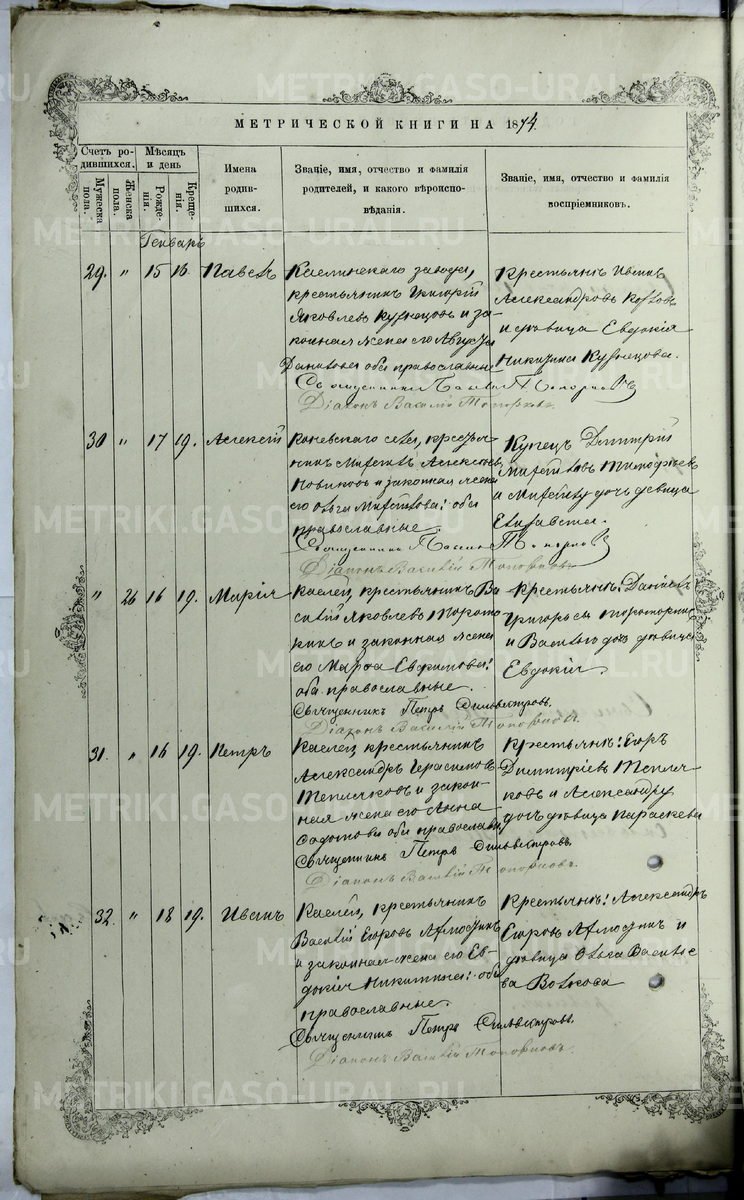 МЕТРИЧЕСКОЙ КНИГИ НА 1874.
Счетъ родившихся.
Мужеска пола.
Женска пола.
Мѣсяцъ и день
Рожденія.
Крещенія.
Имена родившихся.
Званіе, имя, отчество и фамилія родителей, и какого вѣроисповѣданія.
Званіе, имя, отчество и фамилія воспріемниковъ.
Генварь
29. " 15 16. Павелъ
Каслинскаго завода,
крестьянинъ Григорій
Яковлевъ Кузнецовъ и за-
конная жена его
оба православные
Крестьянинъ Иванъ
Александровъ
и дѣвица Евдокія
Никитина Кузнецова.
Священникъ
Діаконъ Василій Топорковъ.
30 " 17 19. Алексѣй
села, крестья-
нинъ
Новиковъ и законная жена
его Ольга оба
православные.
Купецъ Дмитрій
Тимофѣевъ
и дочь дѣвица
Елизавета.
Священникъ
Діаконъ Василій Топорковъ
" 26 16 19. Марія
Каслей, крестьянинъ Ва-
силій Яковлевъ
и законная жена
его Марѳа Евфимова:
оба православные.
Крестьян: Даніилъ
Григорьевъ
и дочь дѣвица
Евдокія.
Священникъ Петръ Сильвестровъ.
Діаконъ Василій Топорковъ.
31. " 16 19. Петръ
Каслей, крестьянинъ
Александръ Герасимовъ
Тепляковъ и закон-
ная жена его Анна
оба православны
Крестьян: Егоръ
Димитріевъ Тепля-
ковъ и Александра
дочь дѣвица Параскева
Священникъ Петръ Сильвестровъ.
Діаконъ Василій Топорковъ.
32 " 18 19. Иванъ
Каслей, крестьянинъ
Василій Егоровъ
и законная жена его Ев-
докія Никитина: оба
православные.
Крестьян: Александръ
Егоровъ и
дѣвица Ольга Василье-
ва Волкова
Священникъ Петръ Сильвестровъ.
Діаконъ Василій Топорковъ.
METRIKI.GASO-URAL.RU